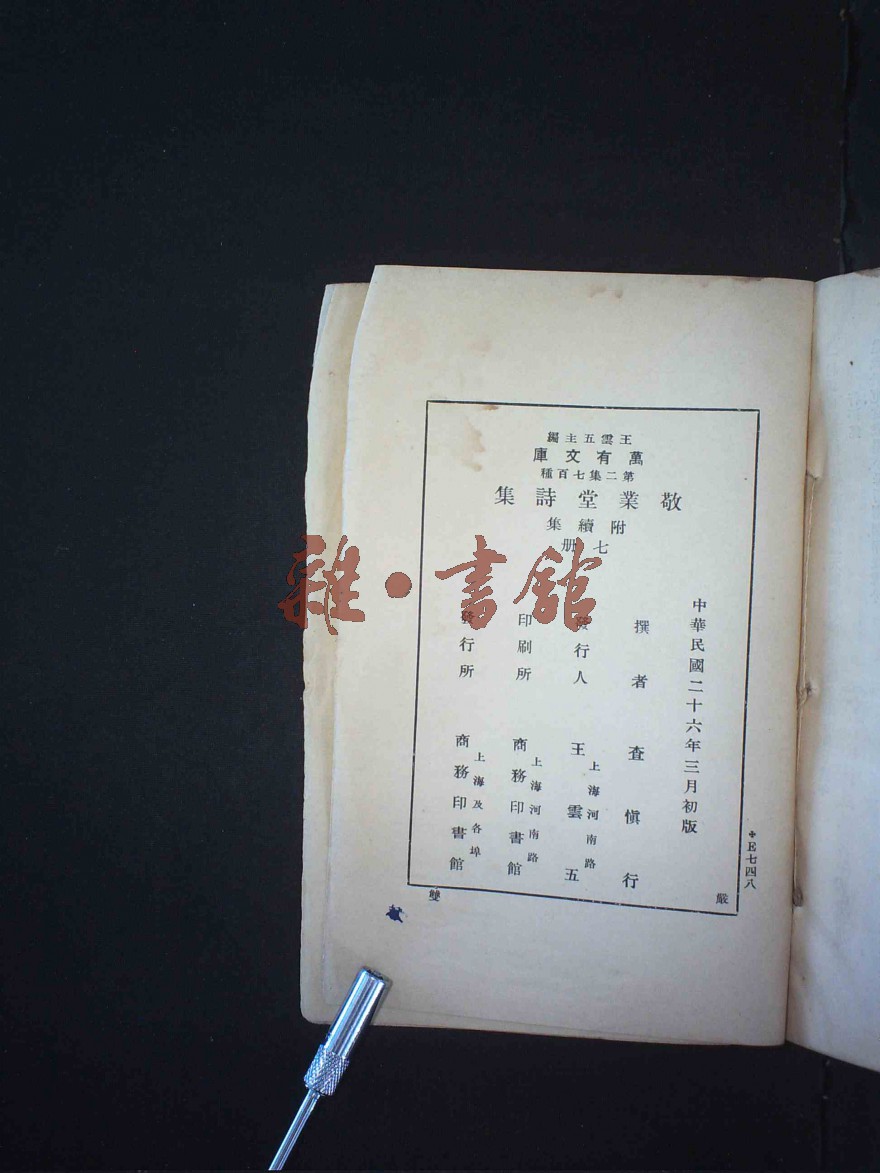 王雲五主編
萬有文庫
第二集七百種
敬業堂詩集
附續集
七册
中華民國二十六年三月初版
✢E七四八
撰者 查愼行
發行人 王雲五
上海河南路
印刷所 商務印書館
上海河南路
發行所 商務印書館
上海及各埠
嚴
雙
雜·書館